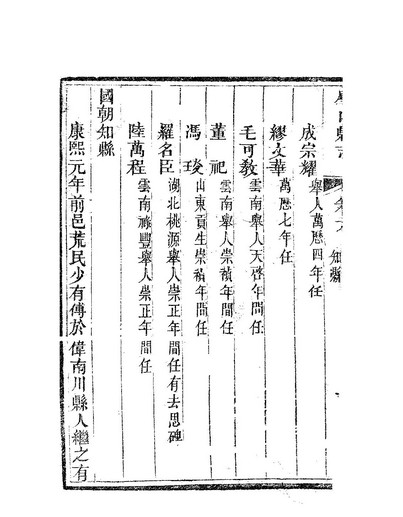 縣志 卷六 知縣
成宗耀 舉人萬曆四年任
繆文華 萬曆七年任
毛可教 雲南舉人天啓年間任
董祀 雲南舉人崇禎年間任
馮琰 山東貢生崇禎年間任
羅名臣 湖北桃源舉人崇正年間任有去思碑
陸萬程 雲南祿豐舉人崇正年間任
國朝知縣
康熙元年前邑荒民少有傅於偉南川縣人繼之有